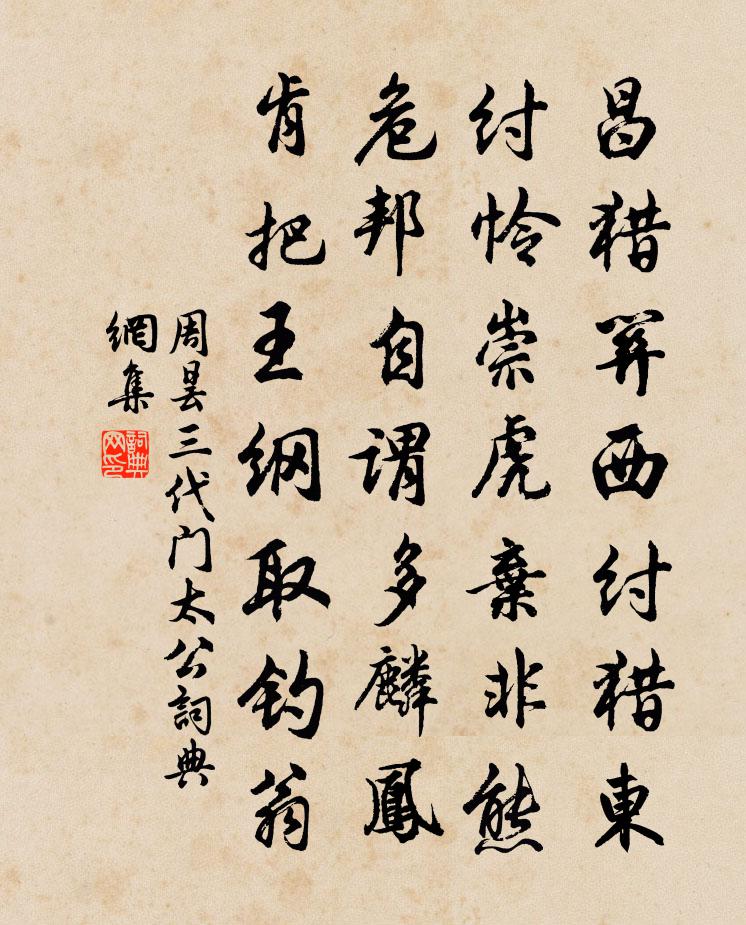 昌猎关西纣猎東
纣怜崇虎棄非熊
危邦自谓多麟鳳
肯把王纲取钓翁
周昙三代门太公詞典
網集
詞典网印